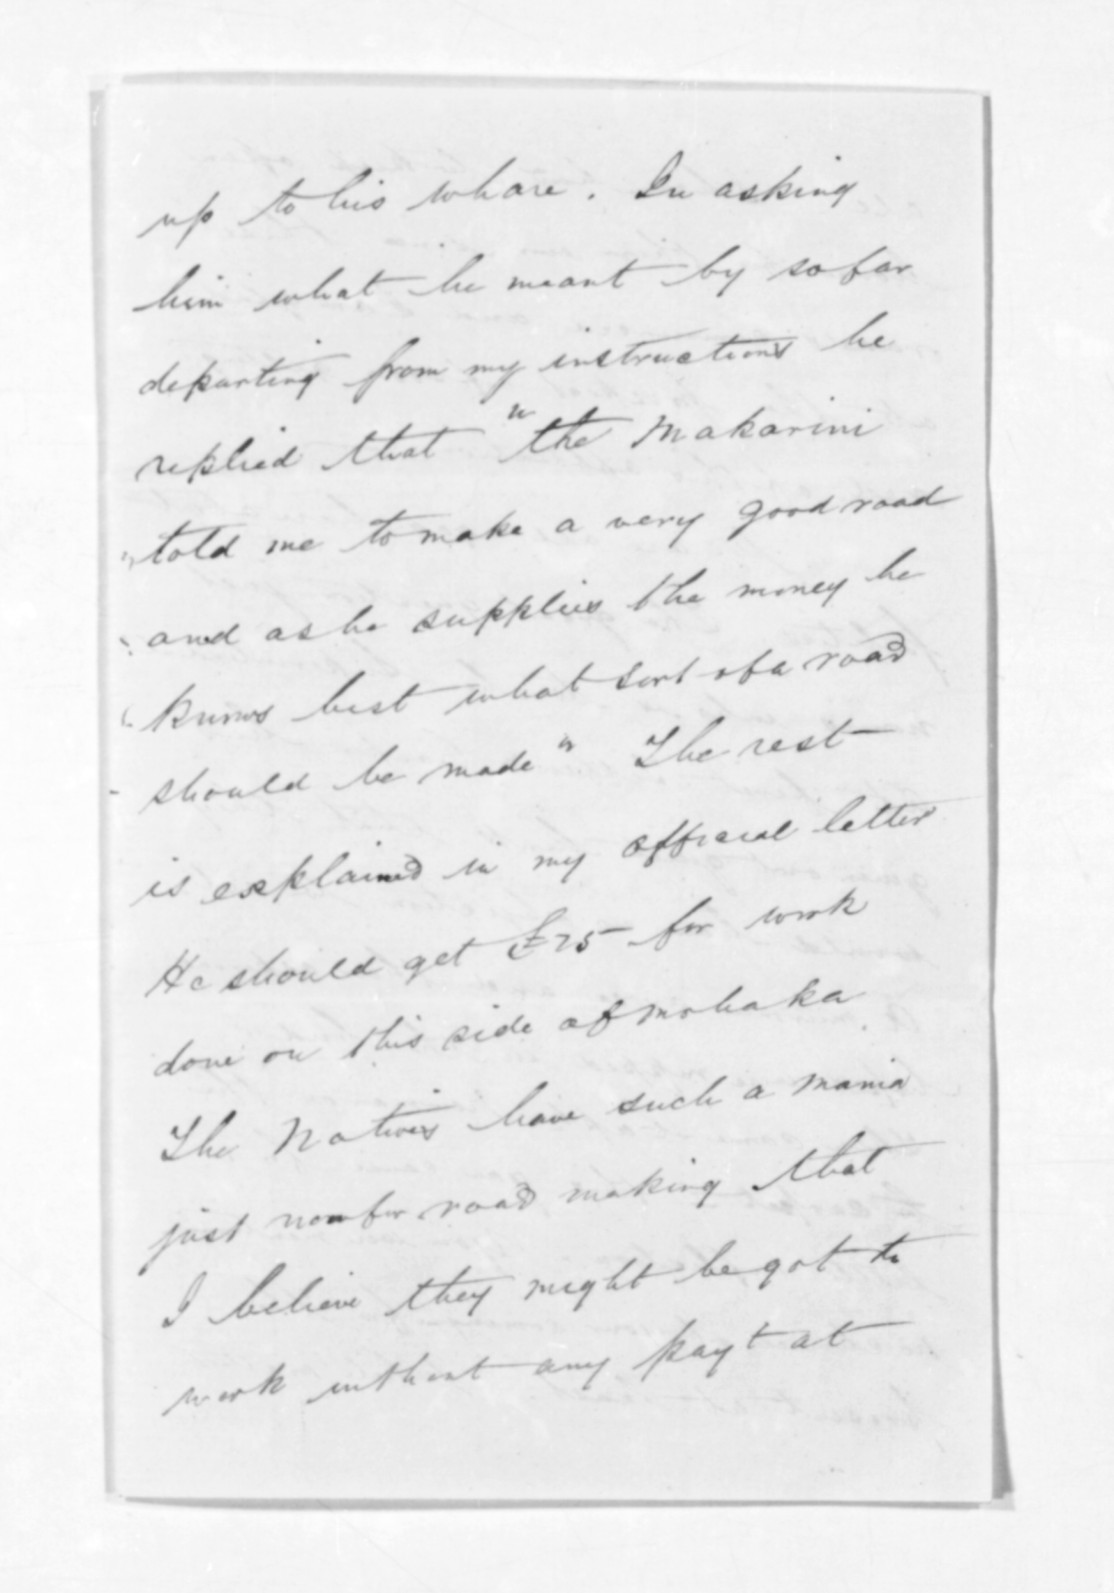 up to his whare. In asking
him what he meant by so far
departing from my instructions he
replied that "the Makarini
" told me to make a very good road
" and as he supplies the money he
" knows best what sort of a road
" should be made" The rest
is explained in my official letter
He should get £75 for work
done on this side of Mohaka
The Natives have such a mania
just now for road making that
I believe they might be got to
work without any payt at